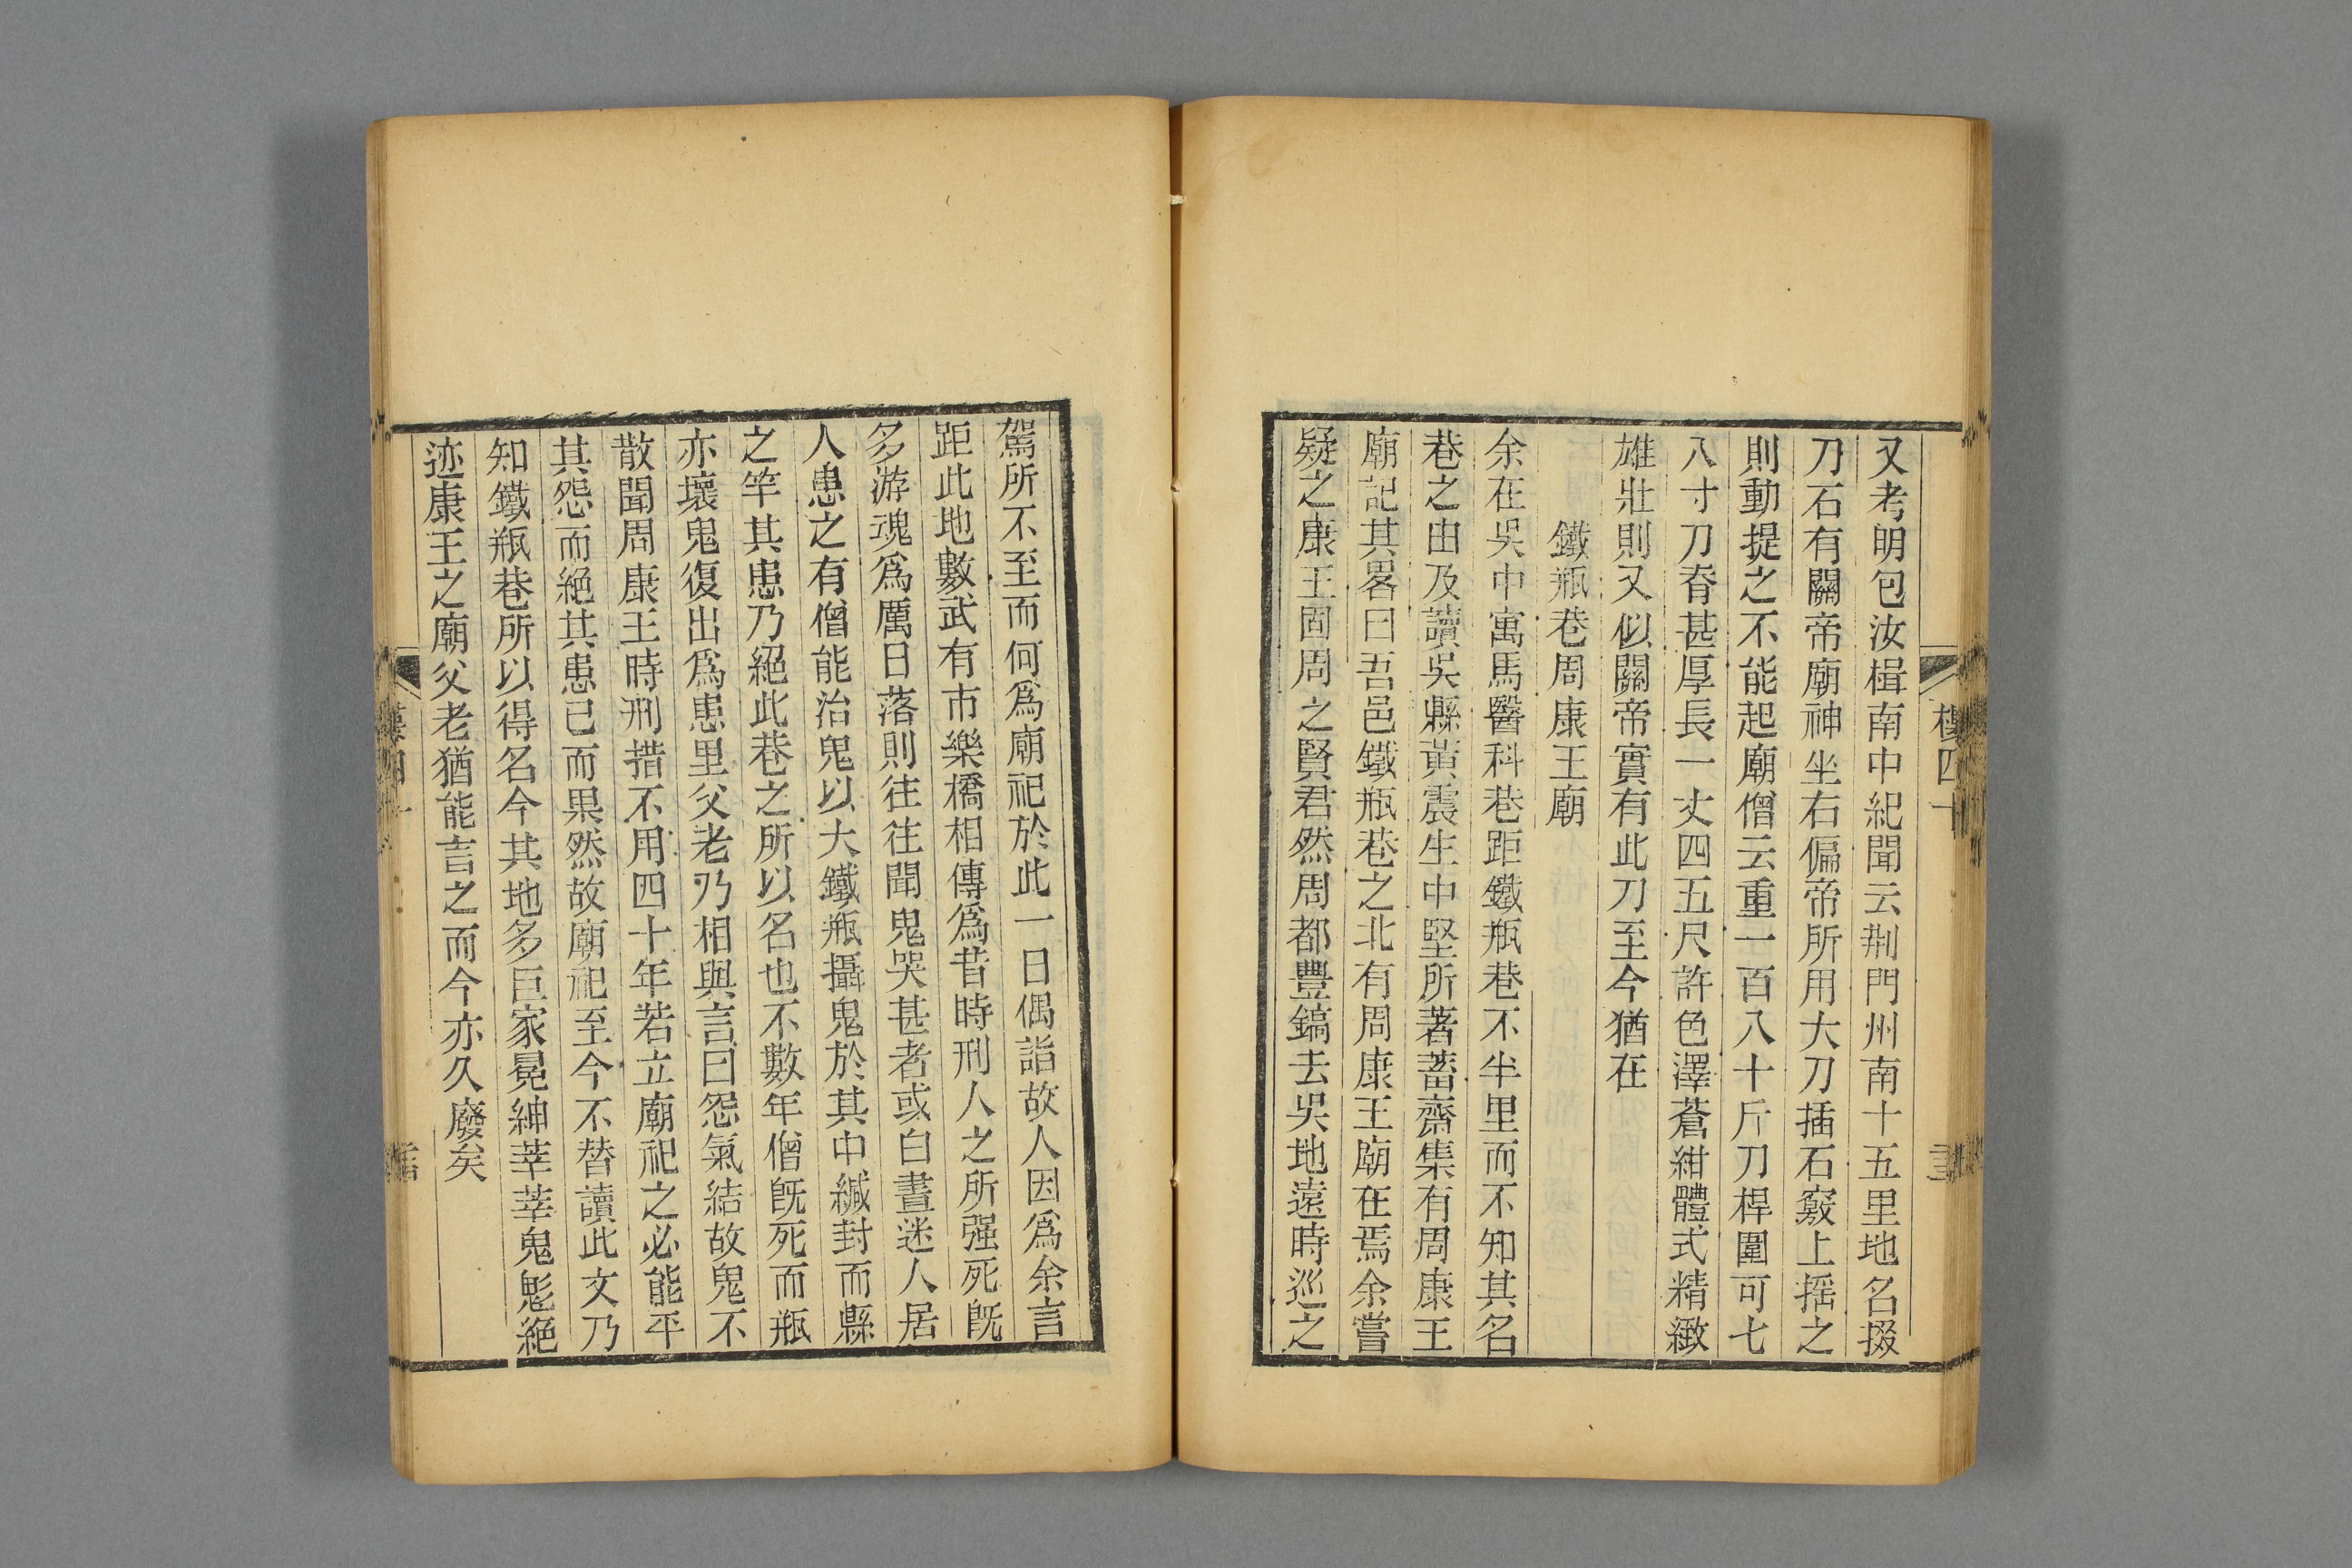 又考明包汝楫南中紀聞云荆門州南十五里地名掇
刀石有關帝廟神坐右偏帝所用大刀插石竅上摇之
則動提之不能起廟僧云重一百八十斤刀桿圍可七
八寸刀脊甚厚長一丈四五尺許色澤蒼紺體式精緻
雄壯則又似關帝實有此刀至今猶在
鐵瓶巷周康王廟
余在吳中寓馬醫科巷距鐵瓶巷不半里而不知其名
巷之由及讀吳縣黃震生中堅所著蓄齋集有周康王
廟記其畧曰吾邑鐵瓶巷之北有周康王廟在焉余嘗
疑之康王固周之賢君然周都豐鎬去吳地遠時巡之
駕所不至而何爲廟祀於此一日偶詣故人因爲余言
距此地數武有市樂橋相傳爲昔時刑人之所强死旣
多游魂爲厲日落則往往聞鬼哭甚者或白晝迷人居
人患之有僧能治鬼以大鐵瓶攝鬼於其中緘封而縣
之竿其患乃絕此巷之所以名也不數年僧旣死而瓶
亦壞鬼復出爲患里父老乃相與言曰怨氣結故鬼不
散聞周康王時刑措不用四十年若立廟祀之必能平
其怨而絕其患已而果然故廟祀至今不替讀此文乃
知鐵瓶巷所以得名今其地多巨家冕紳莘莘鬼魅絕
迹康王之廟父老猶能言之而今亦久廢矣